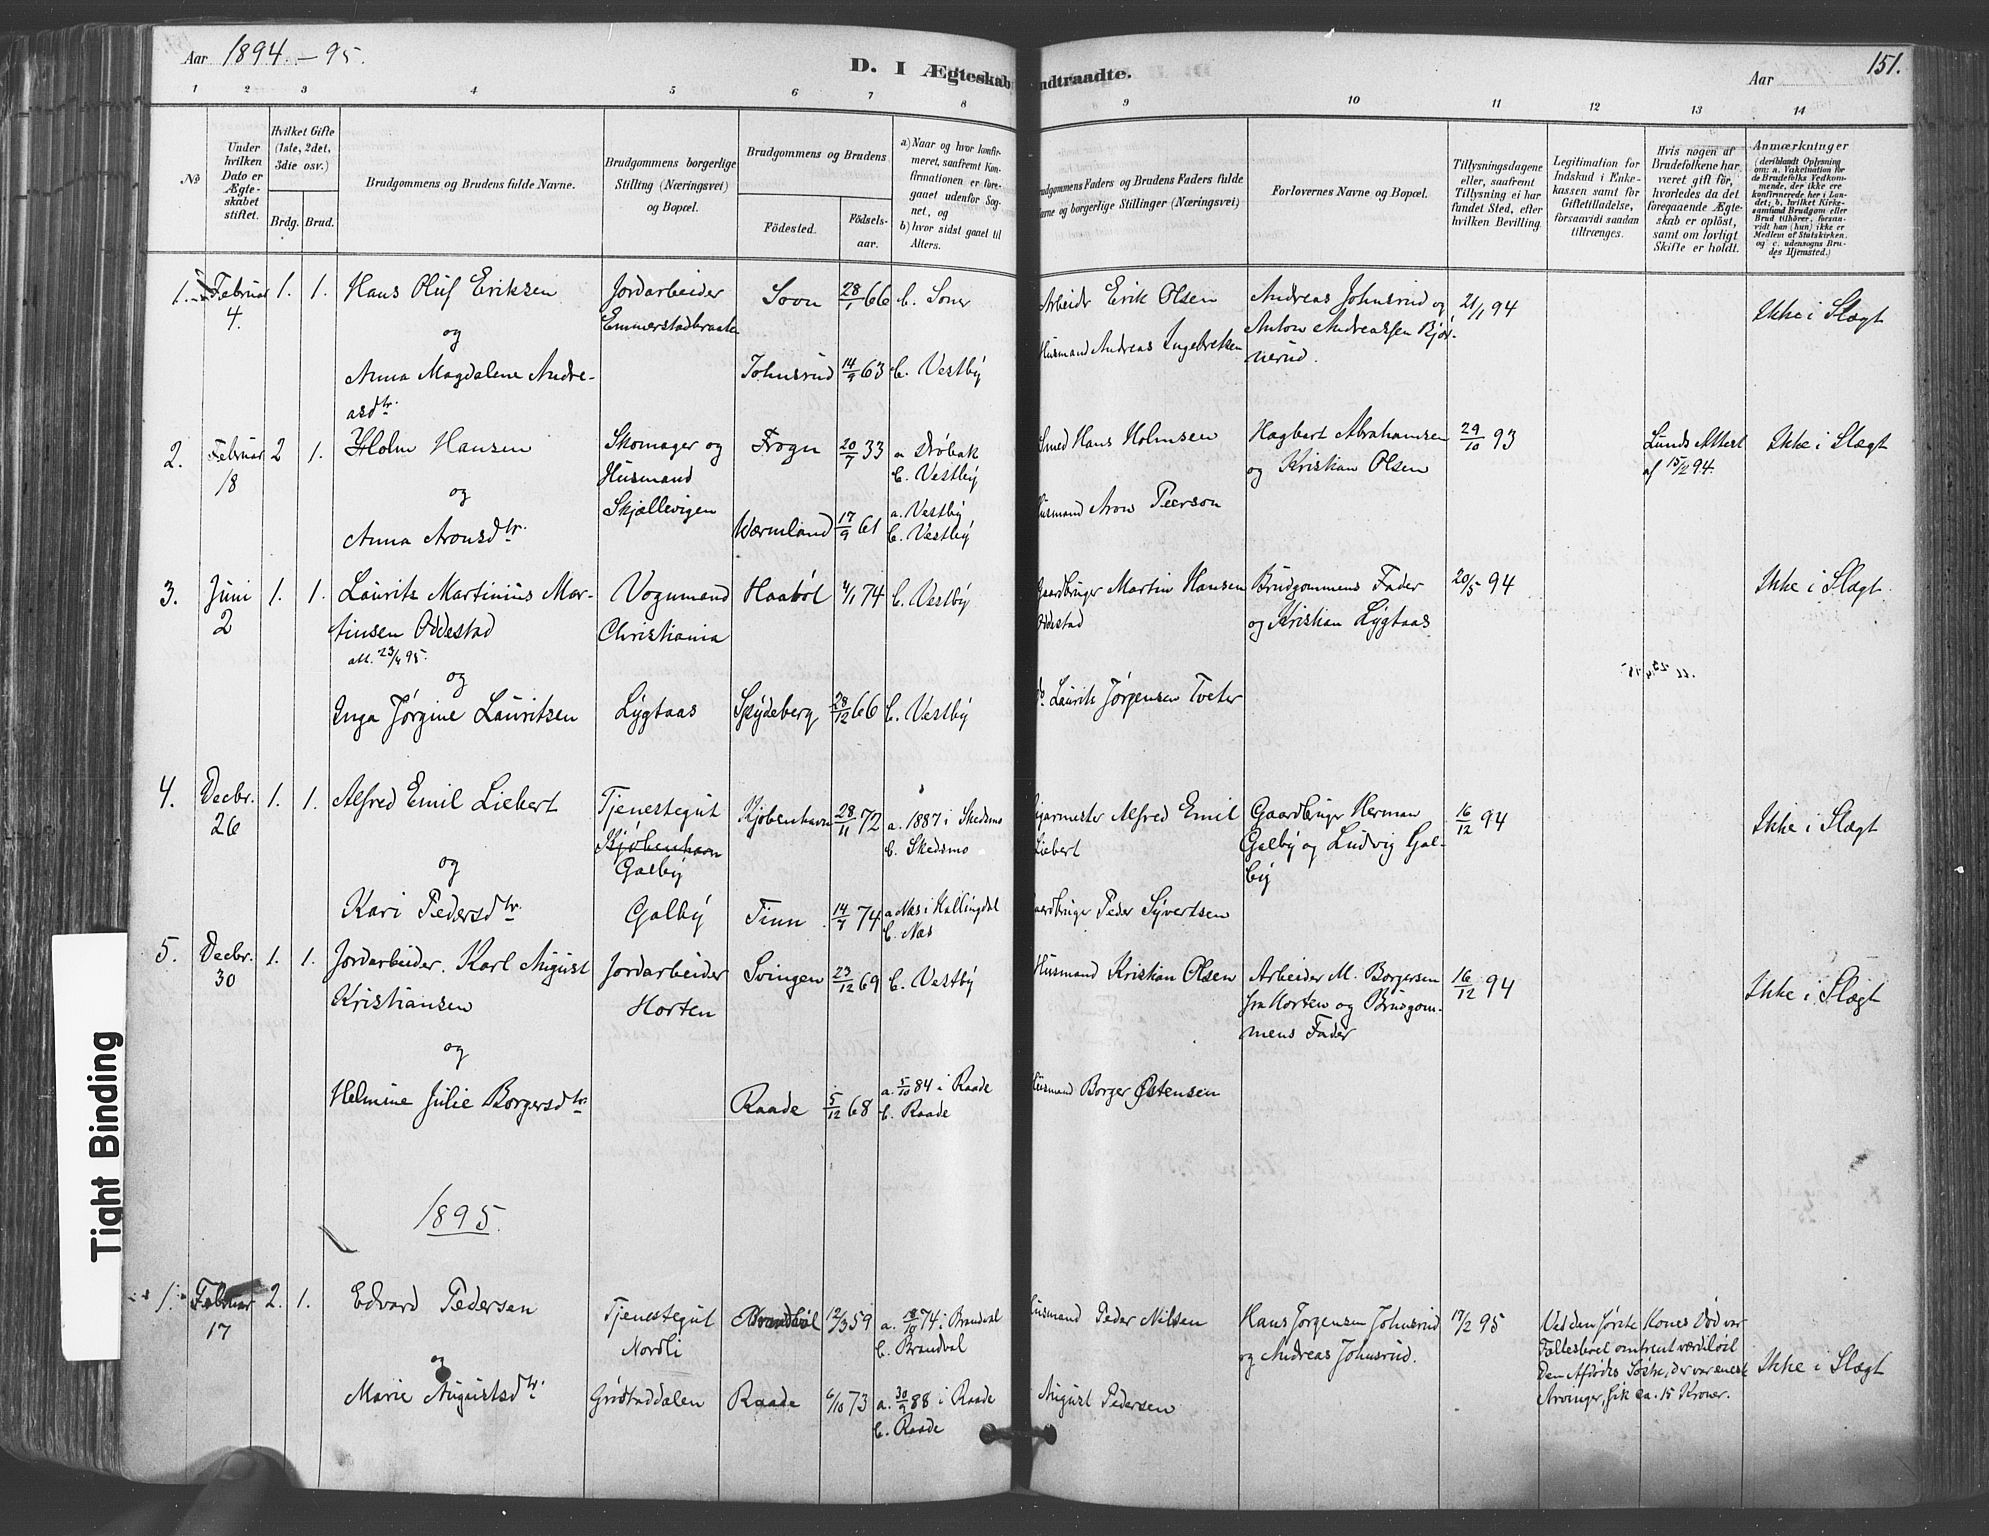 Aar 1894.-95.
D. I Ægteskab
ndtraadte.
Aar
151.
1 2 3 4 5 6 7 8 9 10 11 12 13 14
No
Under hvilken Dato er Ægteskabet stiftet.
Hvilket Gifte (1ste, 2det, 3die osv.)
Brdg. Brud.
Brudgommens og Brudens fulde Navne.
Brudgommens borgerlige Stilling (Næringsvei) og Bopæl.
Brudgommens og Brudens
Födested.
Födsels-aar.
a) Naar og hvor konfirmeret, saafremt Konfirmationen er foregaaet udenfor Sognet, og
b) hvor sidst gaaet til Alters.
udgommens Faders og Brudens Faders fulde
avne og borgerlige Stillinger (Næringsvei)
Forlovernes Navne og Bopæl.
Tillysningsdagene eller, saafremt Tillysning ei har fundet Sted, efter hvilken Bevilling.
Legitimation for Indskud i Enkekassen samt for Giftetilladelse, forsaavidt saadan tiltrænges.
Hvis nogen af Brudefolkene har været gift för, hvorledes da det foregaaende Ægteskab er oplöst, samt om lovligt Skifte er holdt.
Anmærkninger
(deriblandt Oplysning om: a. Vakcination for de Brudefolks Vedkommende, der ikke ere konfirmerede her i Landet; b. hvilket Kirkesamfund Brudgom eller Brud tilhörer, forsaavidt han (hun) ikke er Medlem af Statskirken. og c. udensogns Brudes Hjemsted.)
1. Februar 4. 1. 1. Hans Oluf Eriksen Jordarbeider Emmerstadbraaten Soon 28/1 66 b. Soner Arbeider Erik Olsen Andreas Johnsrud og Anton Andreassen Bjørnerud. 21/1 94 Ikke i Slægt
og
Anna Magdalene Andreasdtr. Johnsrud 14/9 63 b. Vestby Husmand Andreas Ingebretsen
2. Februar 18 2 1. Holm Hansen Skomager og Husmand Skjællevigen Frogn 20/7 33 a Drøbak b. Vestby Smed Hans Holmsen Hagbart Abrahamsen og Kristian Olsen 29/10 93 Lunds Attest af 15/2 94. Ikke i Slægt
og
Anna Aronsdtr. Wærmland 17/9 61 a. Vestby b. Vestby Husmand Aron Peerson
3. Juni 2 1. 1. Laurits Martinius Martinsen Oddestad Vognmand Christiania Haabøl 4/1 74 b. Vestby Gaardbruger Martin Hansen Oddestad Brudgommens Fader og Kristian Lygtaas 20/5 94 Ikke i Slægt.
att. 23/4 95.
og
Inga Jørgine Lauritsen Lygtaas Spydeberg 28/12 66 b. Vestby do Laurits Jørgensen Tveter
4. Decbr. 26 1. 1. Alfred Emil Liebert Tjenestegut Kjøbenhavn Galby Kjøbenhavn 28/11 72 a. 1887 i Skedsmo b. Skedsmo Alfred Emil Liebert Gaardbruger Herman Galby og Ludvig Galby 16/12 94 Ikke i Slægt
og
Kari Pedersdtr. Galby Finn 14/7 74 a Næs i Hallingdal b. Næs Gaardbruger Peder Syvertsen
5. Decbr. 30 1. 1. Jordarbeider. Karl August Kristiansen Jordarbeider Horten Svingen 23/12 69 b. Vestby Husmand Kristian Olsen Arbeider M. Borgersen fra Horten og Brudgommens Fader 16/12 94 Ikke i Slægt
og
Helmine Julie Borgersdtr. Raade 5/12 68 a. 5/10 84 i Raade b. Raade Husmand Borger Østensen
1895.
1. Februar 17 2. 1. Edvard Pedersen Tjenestegut Nordli Brandvol 12/3 59 a. 18/10 74 i Brandval b. Brandval Husmand Peder Nilsen Hans Jørgensen Johnsrud og Andreas Johnsrud. 17/2 95 Ved den første Kones Død var Fællesboet omtrent værdiløst Den Afdødes Søster, der var eneste Arvinger, fik ca. 15 Kroner. Ikke i Slægt
og
Marie Augustsdtr. Grøstaddalen Raade 6/10 73 a. 30/9 88 i Raade b. Raade August Pedersen
Tight Binding